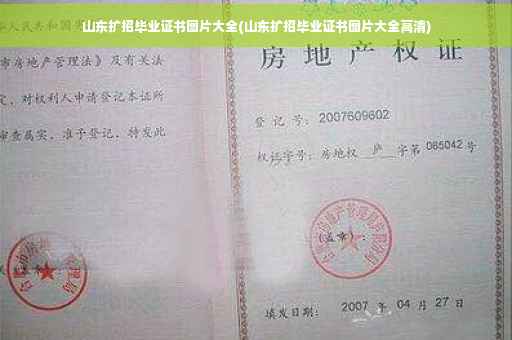 山东扩招毕业证书图片大全(山东扩招毕业证书图片大全高清)
人民共和国
市房地产管理法》及有关法
定，对权利人申请登记本证所
审查属实，准予登记，特发此
房地产权证
登记号：2007609602
权证字号：房地权 庐 字第 065042 号
房地产管理局
(盖章)：
填发日期： 2007 年 04 月 27 日